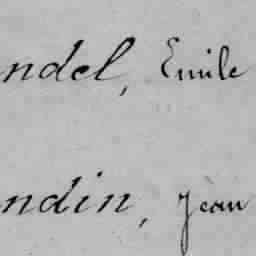 ndel, Emile
ndin, Jean